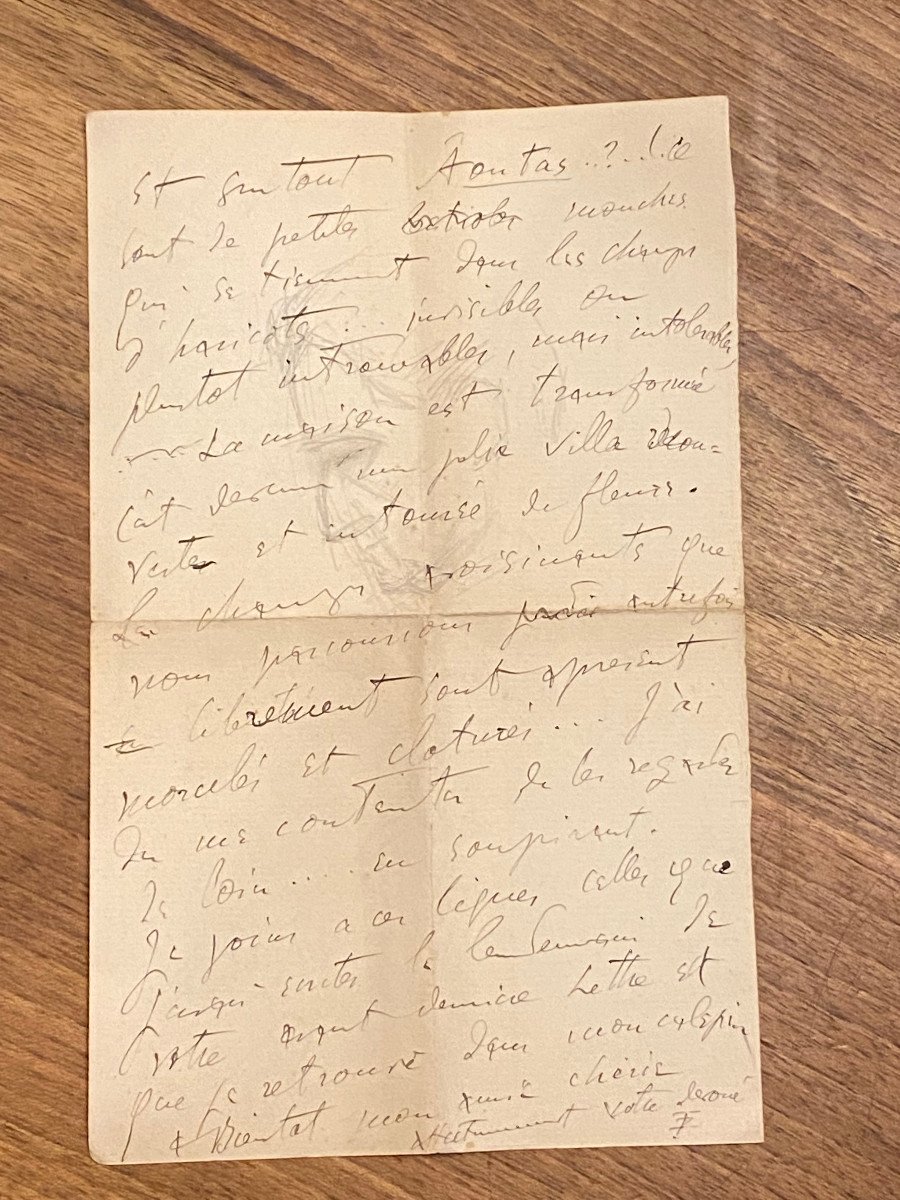 et surtout Aoutas..?..! Ce
sont de petites mouches
qui se tiennent dans les champs
d'haricots... invisibles ou
plustot introuvables, mais intolerables,
La maison est transformée
c'est devenu une jolie villa recou=
verte et entourée de fleurs.
Les champs voisinants que
nous parcourions autrefois
librement sont apresent
morcelés et cloturés... J'ai
du me contenter de les regarder
de loin.... en soupirant.
Je joins a ces lignes celles que
j'avais ecrites le lendemain de
votre avant derniere Lettre et
que je retrouve dans mon calepin
a Bientot mon amie cherie
votre devoué